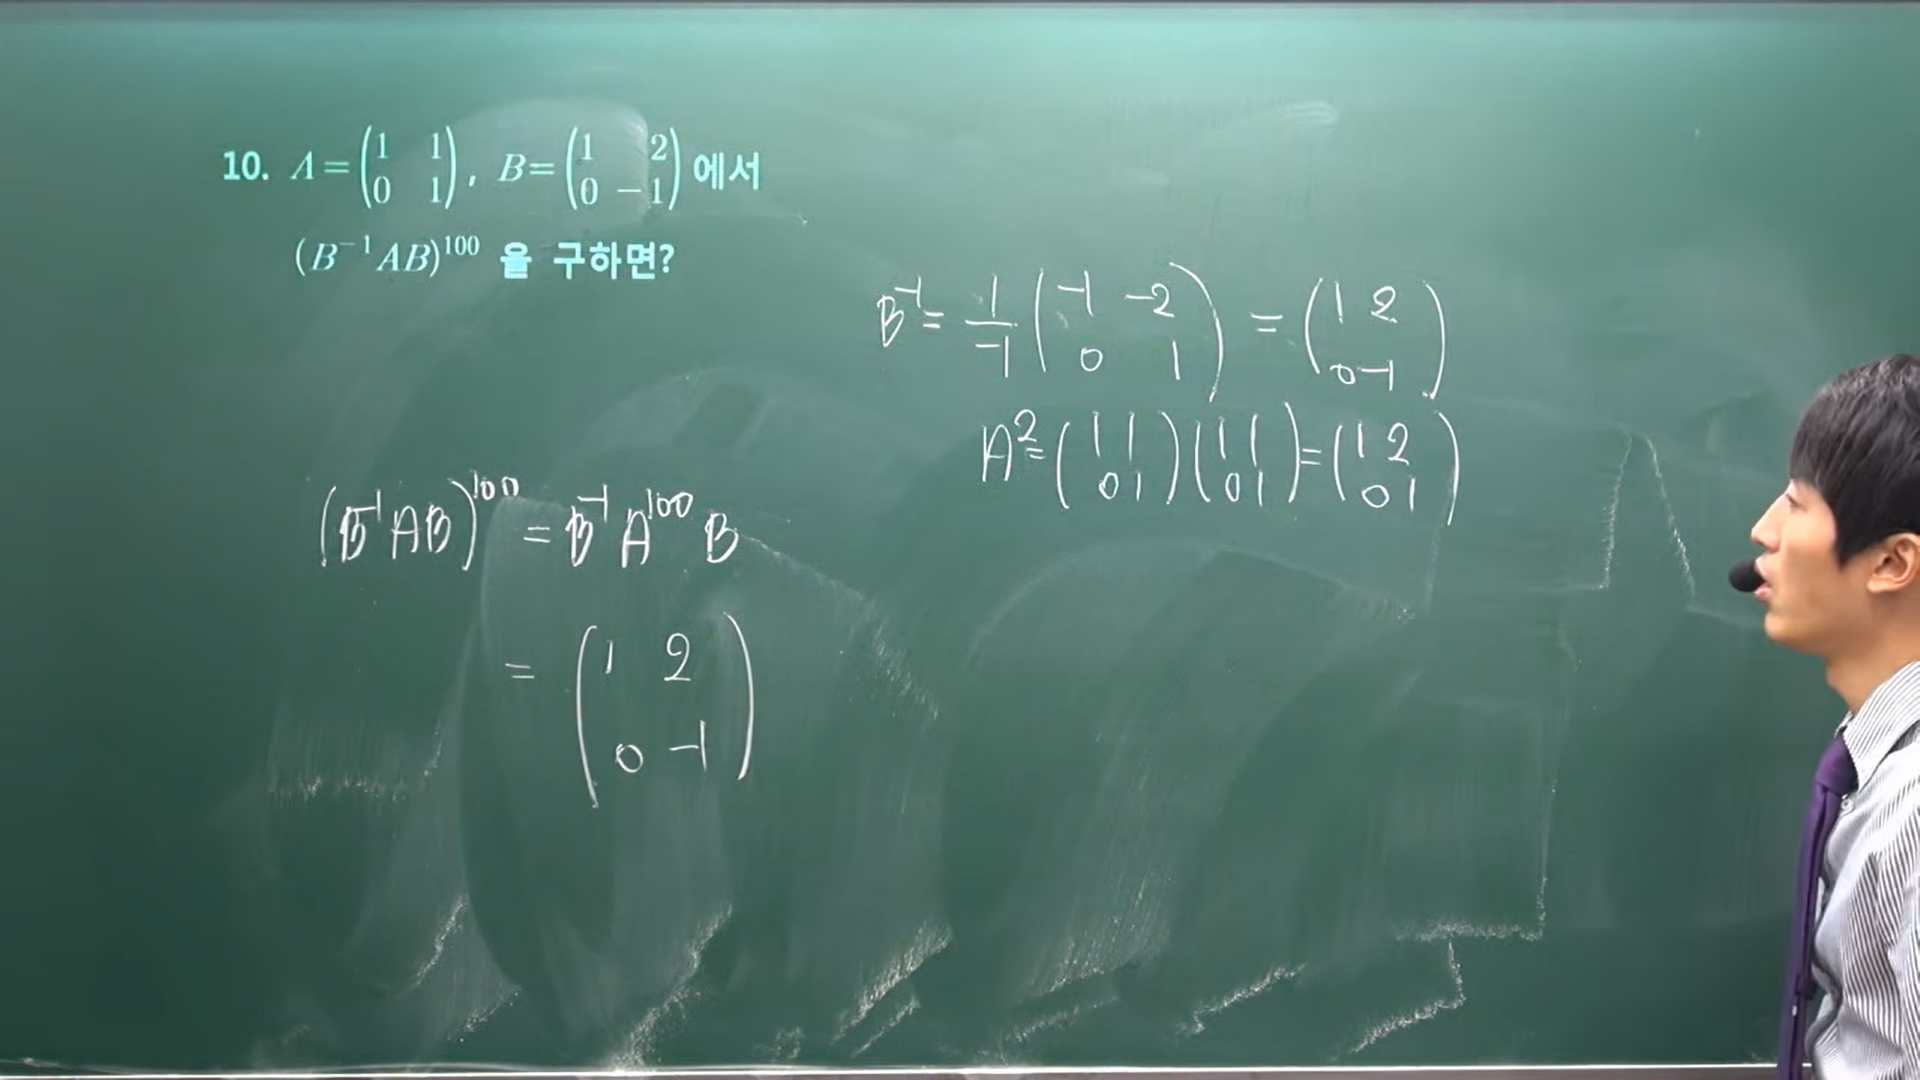 10. A = (1 1 0 1), B = (1 2 0 -1) 에서
(B⁻¹AB)¹⁰⁰ 을 구하면?
B⁻¹ = 1/-1 (-1 -2 0 1) = (1 2 0 -1)
A² = (1 1 0 1)(1 1 0 1) = (1 2 0 1)
(B⁻¹AB)¹⁰⁰ = B⁻¹A¹⁰⁰B
= (1 2 0 -1)